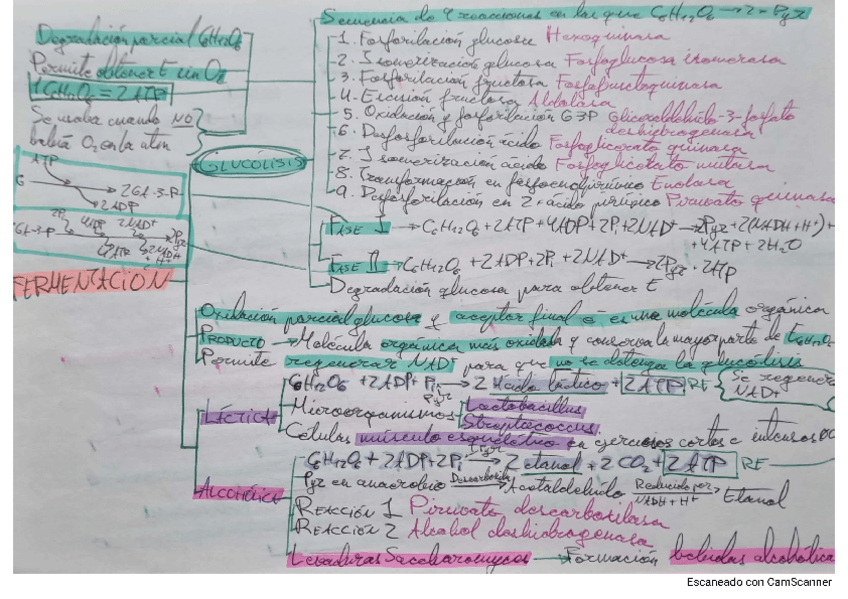 Secuencia de 9 reacciones en las que C6H12O6 → 2 Pyr
Degradación parcial C6H12O6
Permite obtener E sin O2
1 C6H12O6 = 2 ATP
Se usaba cuando NO
había O2 en la atm
1. Fosforilación glucosa Hexoquinasa
2. Isomerización glucosa Fosfoglucosa isomerasa
3. Fosforilación fructosa Fosfofructoquinasa
4. Escisión fructosa Aldolasa
5. Oxidación y fosforilación G3P Gliceraldehído-3-fosfato
deshidrogenasa
6. Desfosforilación ácido Fosfoglicerato quinasa
7. Isomerización ácido Fosfoglicerato mutasa
8. Transformación en Enolasa
9. Desfosforilación en 2 ácido pirúvico Piruvato quinasa
GLUCÓLISIS
ATP
G
2GA-3-P
2ADP
2Pi 4ADP 2NAD+
GA-3-P
2Pyr
4ATP 2NADH
+ H+
FASE I → C6H12O6 + 2ATP + 4ADP + 2Pi + 2NAD+ → 2Pyr + 2(NADH + H+) +
+ 4ATP + 2H2O
FASE II → C6H12O6 + 2ADP + 2Pi + 2NAD+ → 2Pyr + 2ATP
Degradación glucosa para obtener E
FERMENTACIÓN
Oxidación parcial glucosa y aceptor final é es una molécula orgánica
PRODUCTO → Molécula orgánica más oxidada y conserva la mayor parte de E C6H12O6
Permite regenerar NAD+ para que no se detenga la glucólisis
LÁCTICA
C6H12O6 + 2ADP + Pi → 2 Ácido láctico + 2ATP RE
Pyr
Se regenera
NAD+
Microorganismos
Lactobacillus
Streptococcus
Células músculo esquelético en ejercicios cortos e intensos
ALCOHÓLICA
C6H12O6 + 2ADP + 2Pi → 2 etanol + 2 CO2 + 2 ATP RE
2Pyr
Pyr en anaerobio Descarboxila → Acetaldehído Reducido por NADH + H+ → Etanol
REACCIÓN 1 Piruvato descarboxilasa
REACCIÓN 2 Alcohol deshidrogenasa
Levaduras Saccharomyces → Formación bebidas alcohólica
Escaneado con CamScanner